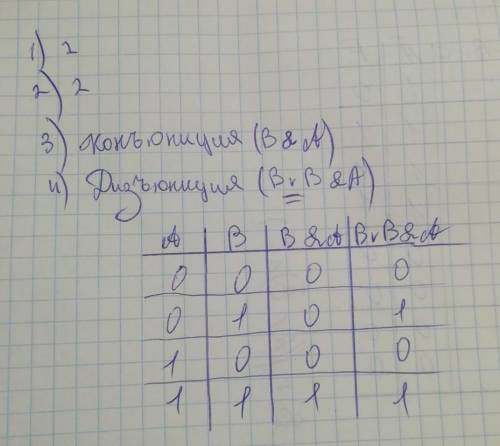 1) 2
2) 2
3) Конъюнкция (B & A)
4) Дизъюнкция (B v B & A)
A B B & A B v B & A
0 0 0 0
0 1 0 1
1 0 0 0
1 1 1 1